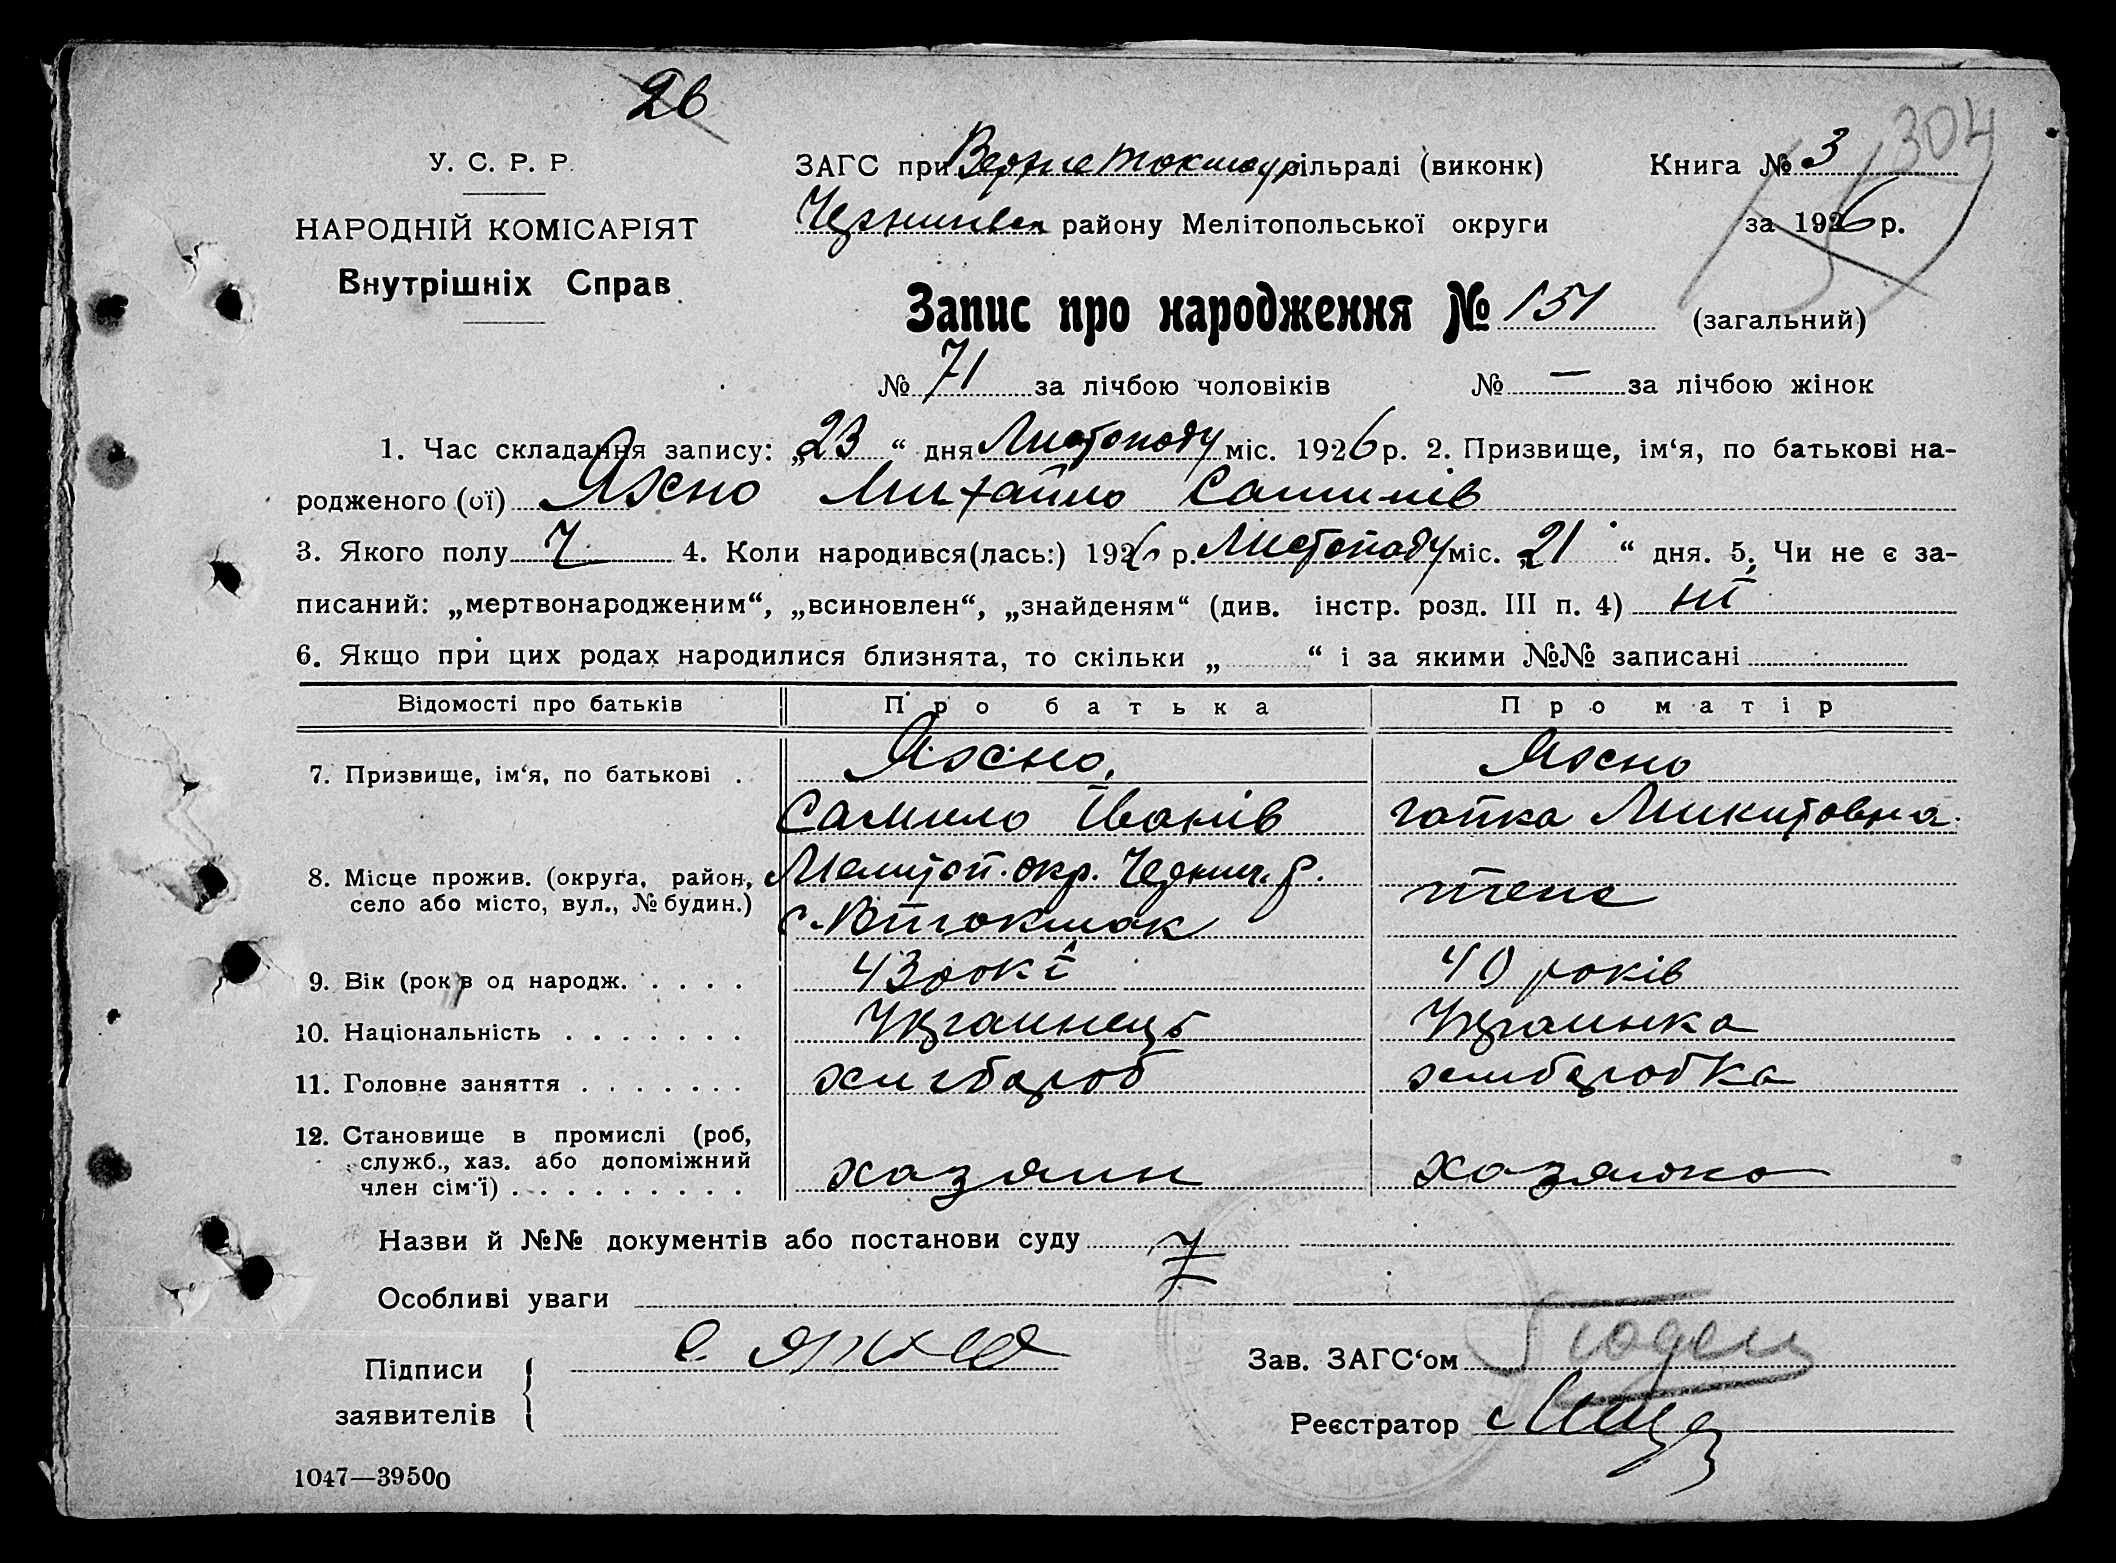 26
304
У. С. Р. Р.
НАРОДНІЙ КОМІСАРІЯТ
Внутрішніх Справ
ЗАГС при Верхнетокмац сільраді (виконк)
Книга № 3
району Мелітопольської округи
за 1926 р.
Запис про народження № 151 (загальний)
№ 71 за лічбою чоловіків № — за лічбою жінок
1. Час складання запису: „23“ дня Листопаду міс. 1926 р. 2. Призвище, ім‘я, по батькові на-
родженого (ої) Яхно Михайло Самилів
3. Якого полу Ч. 4. Коли народився(лась:) 1926 р. Листопаду міс. „21“ дня. 5. Чи не є за-
писаний: „мертвонародженим“, „всиновлен“, „знайденям“ (див. інстр. розд. III п. 4) ні
6. Якщо при цих родах народилися близнята, то скільки „ “ і за якими №№ записані
Відомості про батьків Про батька Про матір
7. Призвище, ім‘я, по батькові . Яхно, Яхно
Самило Іванів Гапка Микитовна
8. Місце прожив. (округа, район, Мелитоп. окр. Черниг. р.
село або місто, вул., № будин.) с. Втокмак теж
9. Вік (років од народж. . . . . 43 рокі 40 років
10. Національність . . . . . . . Украинець Украинка
11. Головне заняття . . . . . . . хлибороб хлиборобка
12. Становище в промислі (роб,
служб., хаз. або допоміжний
член сім‘ї) . . . . . . . . . хазяин хазяйка
Назви й №№ документів або постанови суду
Особливі уваги
Підписи
заявителів
С Яхно
Зав. ЗАГС‘ом
Реєстратор
1047—39500